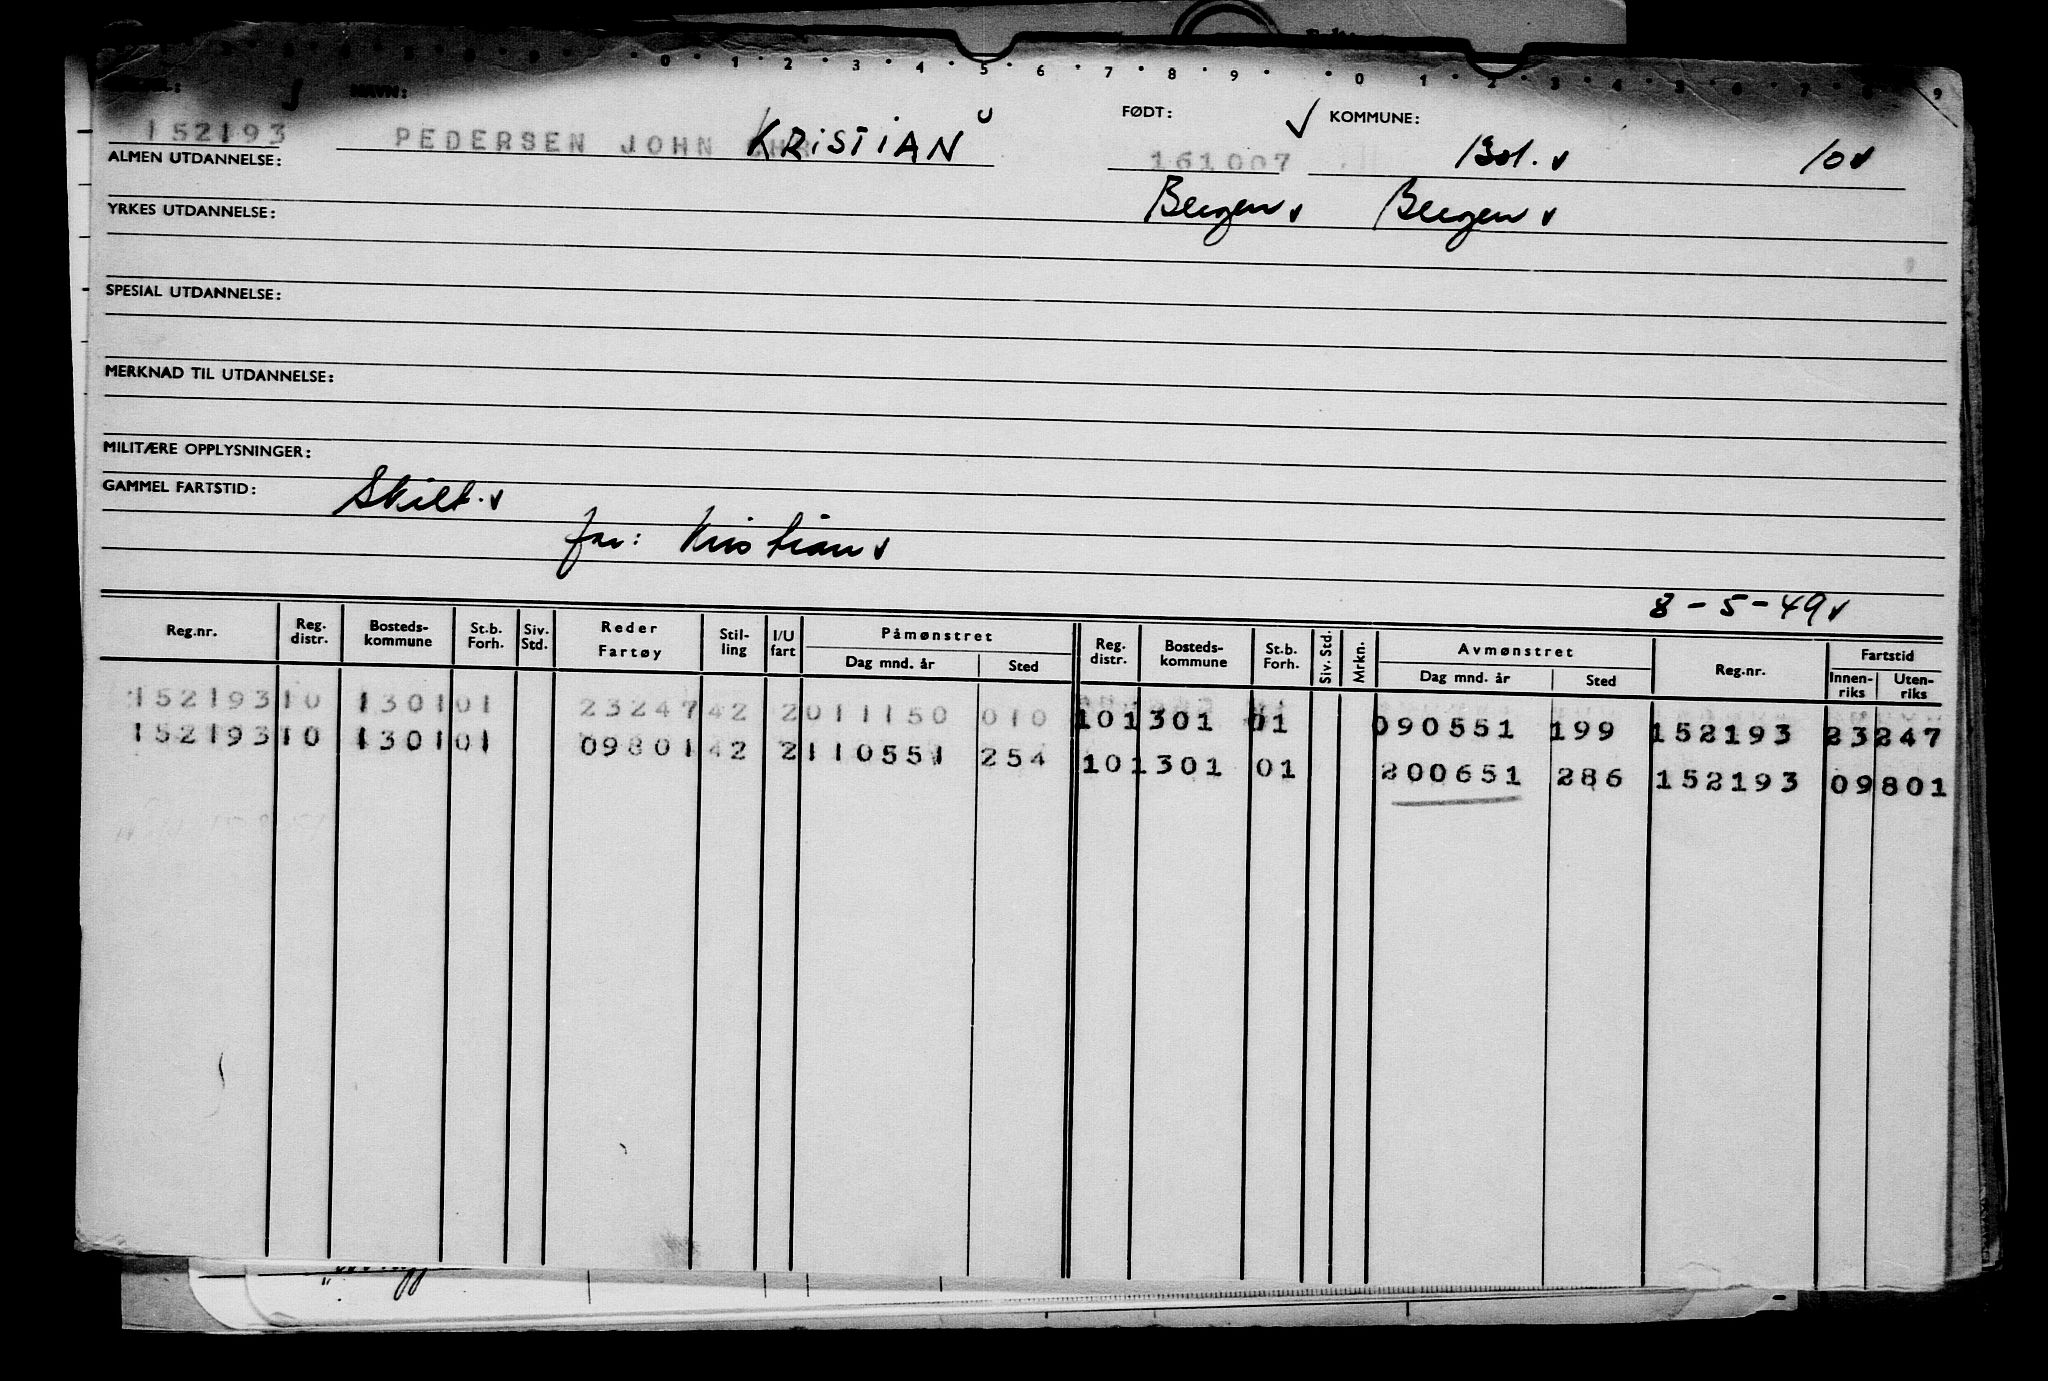 0 · 1 · 2 · 3 · 4 · 5 · 6 · 7 · 8 · 9 · · 0 · 1 · 2 · 3 · 4 · 5 · 6 · 7 · 8 · 9
NAVN: FØDT: KOMMUNE:
152193 PEDERSEN JOHN KRISTIAN 161007 10
ALMEN UTDANNELSE:
Bergen Bergen
YRKES UTDANNELSE:
SPESIAL UTDANNELSE:
MERKNAD TIL UTDANNELSE:
MILITÆRE OPPLYSNINGER:
GAMMEL FARTSTID: Skilt.
far: Kristian
8-5-49
Reg.nr. Reg. distr. Bosteds-kommune St.b. Forh. Siv. Std. Reder Fartøy Stil-ling I/U fart Påmønstret Dag mnd. år Sted Reg. distr. Bosteds-kommune St.b. Forh. Siv. Std. Mrkn. Avmønstret Dag mnd. år Sted Reg.nr. Fartstid Innen-riks Uten-riks
152193 10 1301 01 23247 42 2 011150 010 10 1301 01 090551 199 152193 23247
152193 10 1301 01 09801 42 2 110551 254 10 1301 01 200651 286 152193 09801